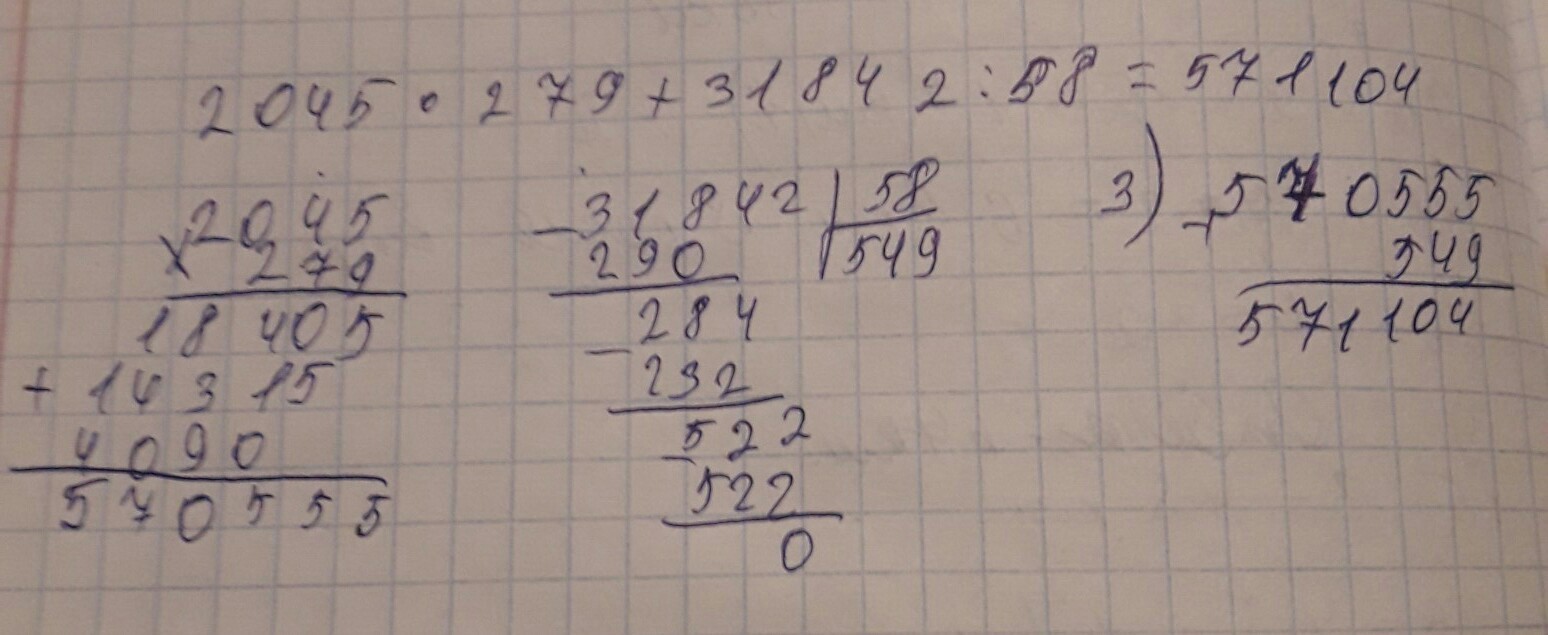 2045 · 279 + 31842 : 58 = 571104
×2045
279
18405
+ 14315
4090
570555
−31842 | 58
290 | 549
−284
232
−522
522
0
3) +570555
549
571104